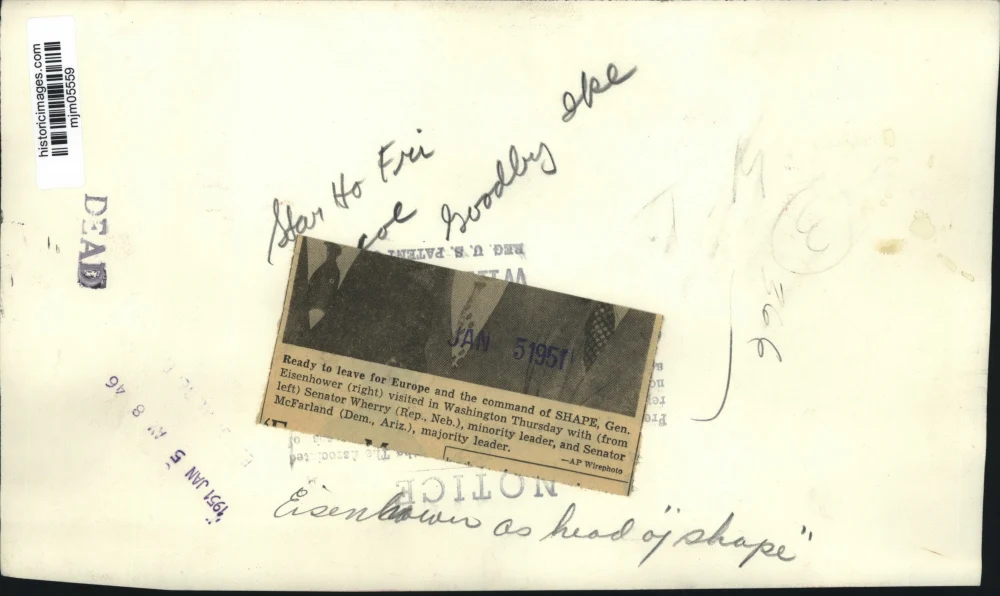 historicimages.com
mjm05559
DEAD
Star Ho Fri
col Goodby Ike
REG. U. S. PATENT
JAN 51951
Ready to leave for Europe and the command of SHAPE, Gen.
Eisenhower (right) visited in Washington Thursday with (from
left) Senator Wherry (Rep., Neb.), minority leader, and Senator
McFarland (Dem., Ariz.), majority leader.
—AP Wirephoto
The Associated
NOTICE
1951 JAN 5 AM 8 46
3
Eisenhower as head of "shape"